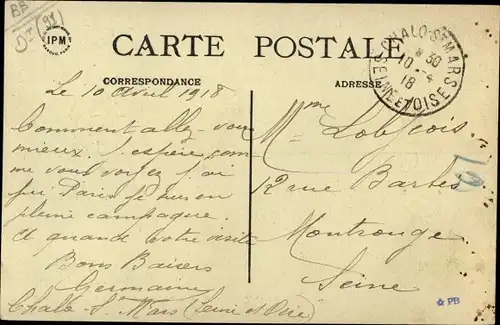 BB
DT (91)
IPM
CARTE POSTALE
CHALO-ST MARS
SEINE-ET-OISE
10 - 4
18
CORRESPONDANCE
ADRESSE
Le 10 Avril 1918
Comment allez-vous
mieux. J'espère com-
me vous voyez j'ai
fui Paris je suis en
pleine campagne.
A quand votre visite
Bons Baisers
Germaine
Chalo St Mars (Seine et Oise)
Mme
12 rue Barbès
Montrouge
Seine
PB